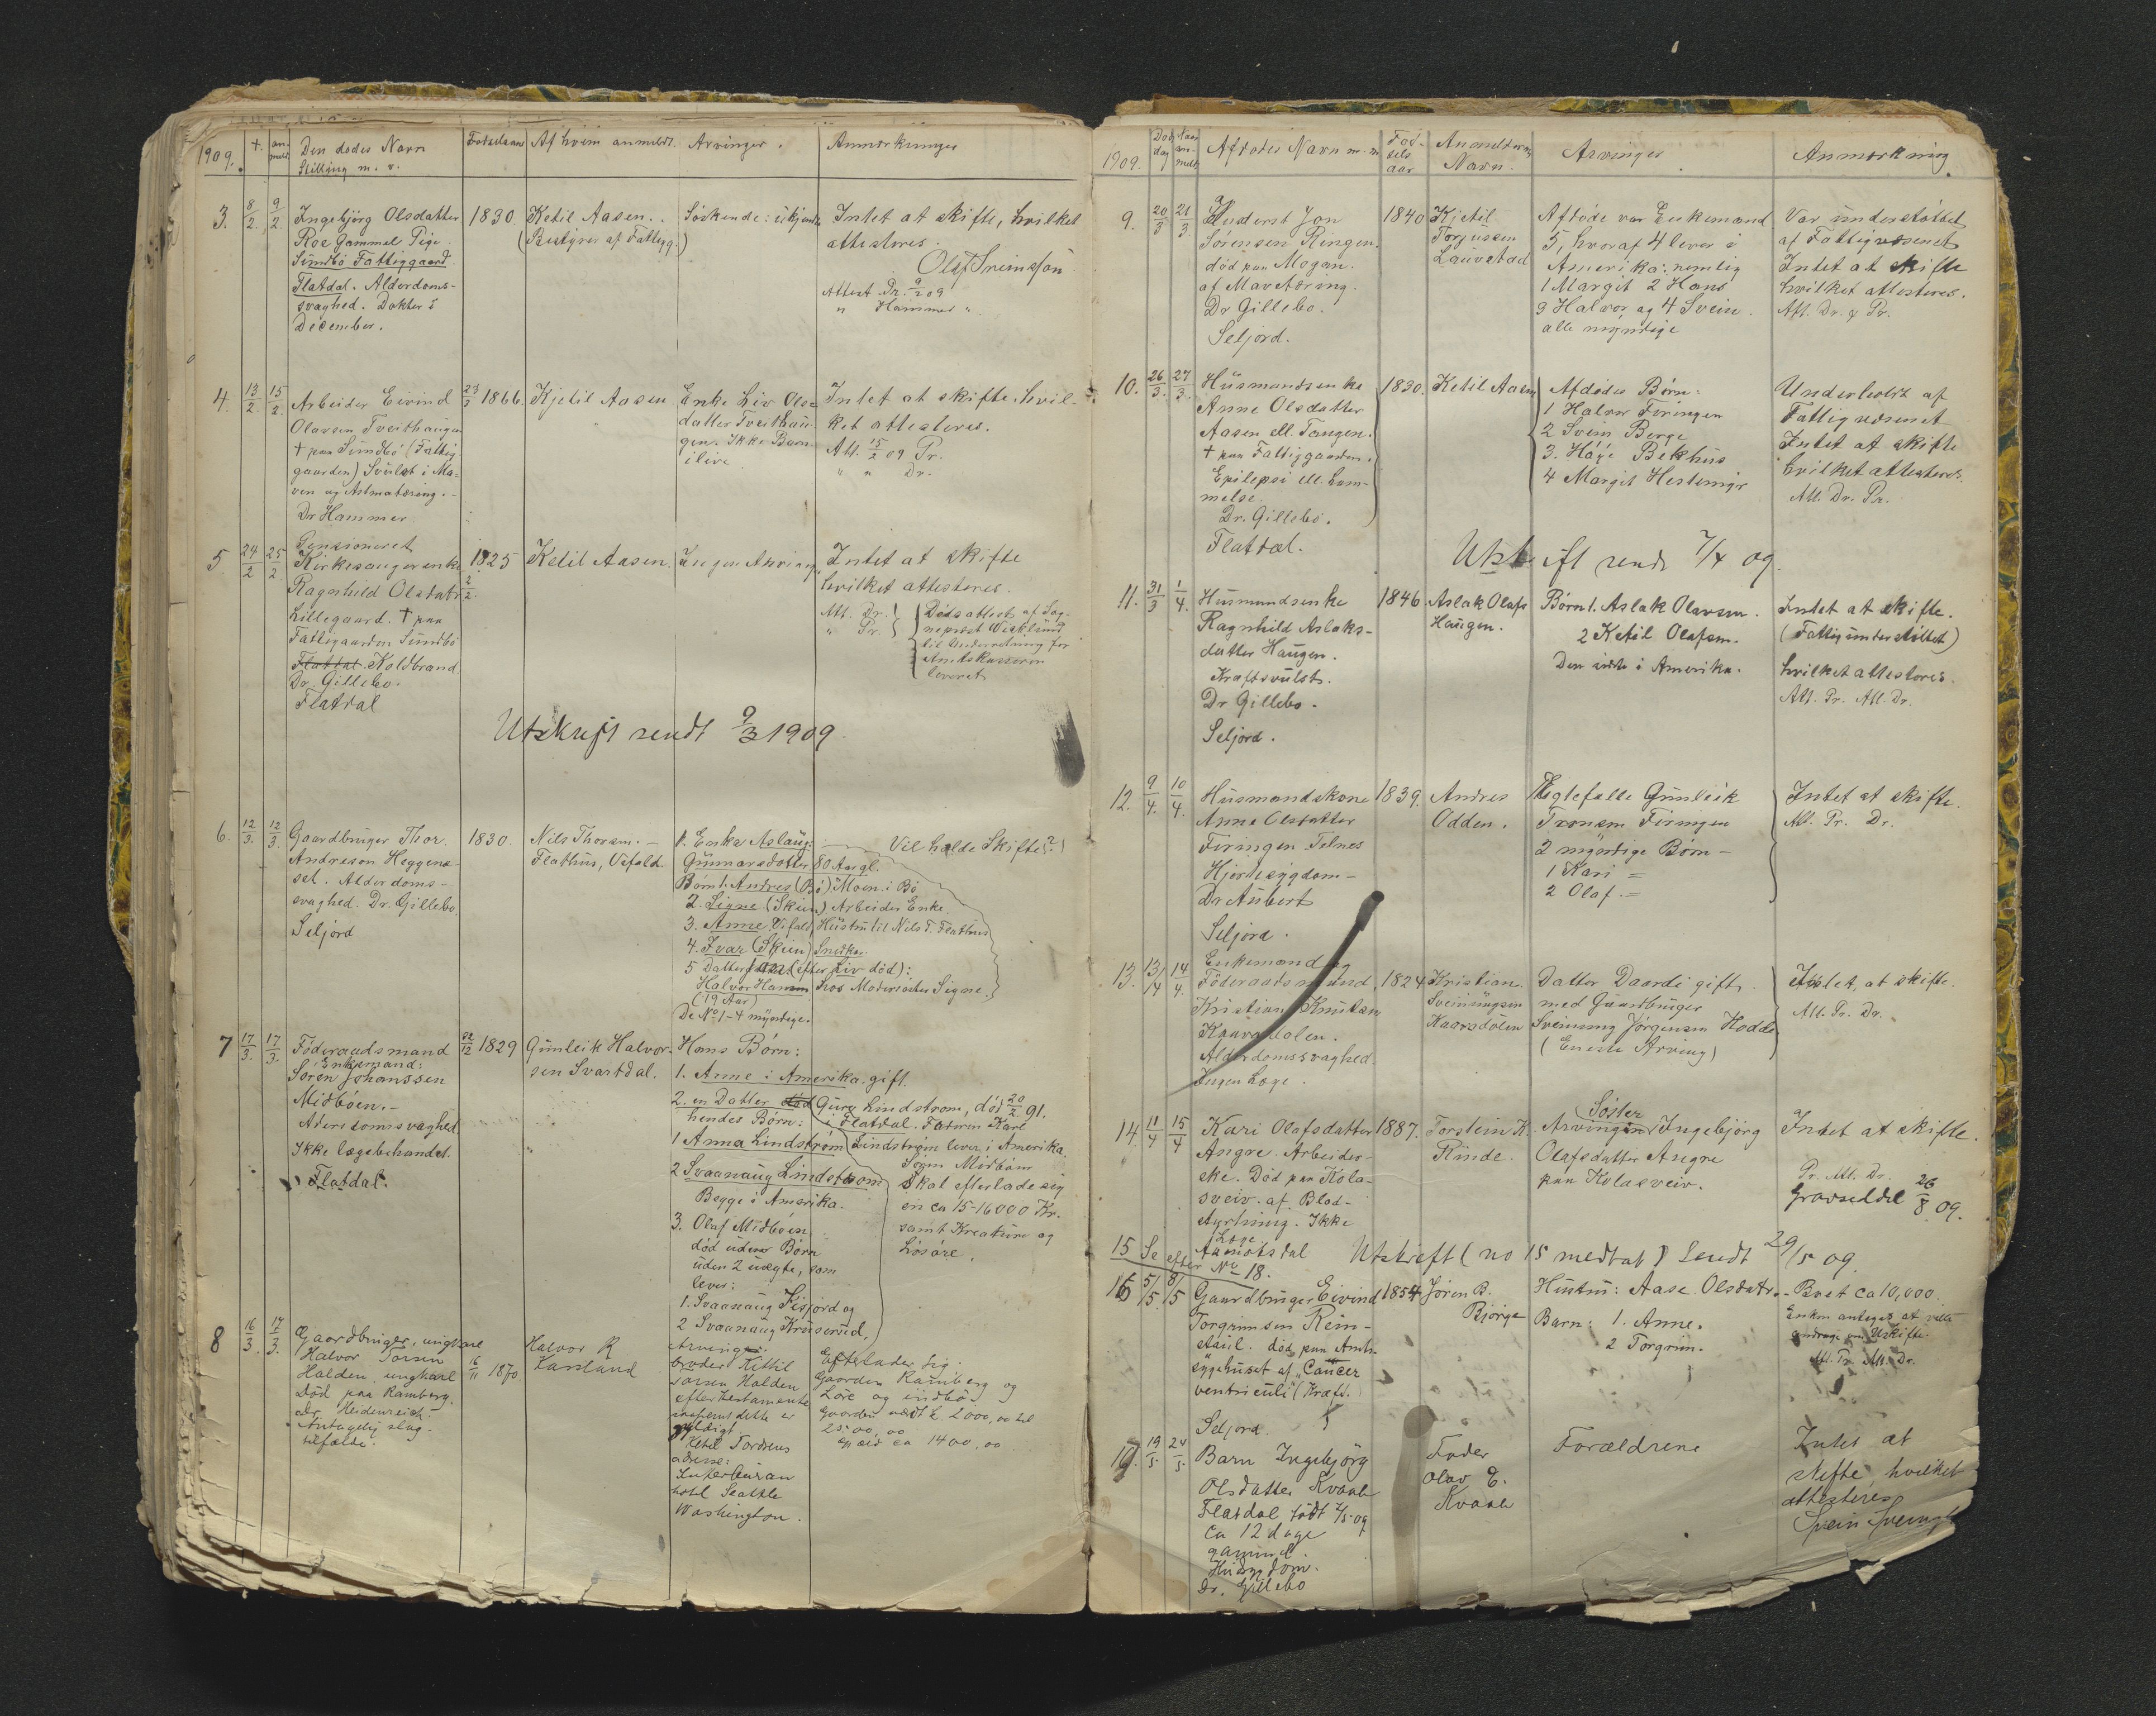 1909.
+.
an-
meld.
Den dødes Navn
Stilling m. v.
Fødselsaar
Af hvem anmeldt.
Arvinger.
Anmærkninger
3. 8/2. 9/2.
Ingebjörg Olsdatter
Roe Gammel Pige.
Sundbö Fattiggaard.
Flatdal. Alderdoms-
svaghed. Dokter i
December.
1830.
Ketil Aasen.
(Bestyrer af Fattigg.)
Söskende: ukjendte
Intet at skifte, hvilket
attesteres.
Attest Pr. 9/2 09
" Hammer "
4. 13/2 15/2.
Arbeider Eivind
Olavsen Tveithaugen
+ paa Sundbö (Fattig
gaarden) Svulst i Ma-
ven og Astmatæring.-
Dr Hammer
1866.
Kjetil Aasen
Enke Liv Ols-
datter Tveithau-
gen. Ikke Barn
ilive
Intet at skifte hvil-
ket attesteres.
Att. 15/2 09 Pr.
" " Dr.
5 24/2 25/2
Pensioneret
Kirkesangerenke
Ragnhild Olsdatr
Lillegaard. + paa
Fattiggaarden Sundbö
Flatdal. Koldbrand
Dr. Gillebo.
Flatdal
1825
2/2.
Ketil Aasen.
Ingen Arving.
Intet at skifte
hvilket attesteres.
Att. Dr.
" Pr.
Dödsattest af Sog-
neprest Wisklund
til Underretning for
Amtskassereren
leveret
Utskrift sendt 9/3 1909.
6. 12/3. 12/3.
Gaardbruger Thor
Andreson Heggene-
set. Alderdoms-
svaghed. Dr. Gillebo.
Seljord
1830.
Nils Thorsen.-
Flathus, Vifald
1. Enke Aslaug
Gunnarsdotter 80 Aargl.
Börn 1. Andres (Bö) Moen i Bö
2. Signe (Skien) Arbeider Enke.
3. Anne Vifald, Hustru til Nils T. Flathus
4. Ivar (Skien) Snedker.
5 Datter (efter Liv död):
Halvor Hansen hos Moderester Signe.
(19 Aar)
De No 1-4 myndige.
Vil holde Skifte (?)
7 17/3. 17/3.
Föderaadsmand
: Enkemand:
Sören Johanssen
Midböen.-
Alderdomssvaghed.
Ikke lægebehandlet.
Flatdal.
1829
Gunleik Halvor-
sen Svartdal.
Hans Börn:
1. Anne i Amerika. gift.
2. en Datter död (Guro Lindström, död 20/2 91.
hendes Börn: i Flatdal. Faderen Karl
1 Anna Lindström Lindström lever i Amerika.
2 Svaanaug Lindström
Begge i Amerika.
3. Olaf Midböen
död uden Börn
uden 2 uægte, som
lever:
1. Svaanaug Kisjord og
2 Svaanaug Kruserud,
Sören Midböen
Skal efterlade sig
en ca 15-16000 Kr.
samt Kreature og
Lösöre.
8 16/3 17/3.
Gaardbruger, ungkare
Halvor Torsen
Halden. ungkarl
Död paa Ramberg.
Dr. Heidenreich
Antagelig slag-
tilfælde.
16/11 1870
Halvor R
Karsland
Arvinger:
broder Kittil
Torsen Halden
efter testamente
isafremt dette er
gyldigt.
Ketil Tordsens
adresse:
Interurban
hotel Seattle
Washington.
Efterlader sig.
Gaarden Ramberg og
Löse og indbö
Gaarden værdt kr. 2000,00 til
2500,00
gjæld ca 1400,00
1909.
Döds
dag
Naar
an-
meldt
Afdödes Navn m. m
Föd-
sels
aar
Anmelderens
Navn.
Arvinger.
Anmærkning.
9. 20/3 21/3.
Husmand Jon
Sörensen Ringen.
död paa Mogan.
af Mavetæring.
Dr Gillebo.
Seljord.
1840
Kjetil
Torjussen
Lauvstad
Afdöde var Enkemand
5, hvoraf 4 lever i
Amerika: nemlig
1 Margit 2 Hans
3 Halvor og 4 Svein.
alle myndige
Var understöttet
af Fattigvæsenet
Intet at skifte
hvilket attesteres.
Att. Dr. & Pr.
10. 26/3. 27/3.
Husmandsenke
Anne Olsdatter
Aasen ell. Tangen.
+ paa Fattiggaarden.
Epilepsi ell. Lam-
melse.
Dr. Gillebo.
Flatdal.
1830.
Ketil Aasen
Afdödes Börn:
1 Halvor Firingen
2 Svein Berge
3. Håge Bekhus
4 Margit Hestemyr
Underholdt af
Fattigvæsenet
Intet at skifte
hvilket attesteres.
Att. Dr. Pr.
Utskrift sendt 7/4 09.
11. 31/3 1/4.
Husmandsenke
Ragnhild Aslaks-
datter Haugen.
Kræftsvulst.
Dr Gillebo.
Seljord.
1846.
Aslak Olafs
Haugen.
Börn 1. Aslak Olavsen.
2 Ketil Olafsen.
Den sidste i Amerika.
Intet at skifte.
(Fattigunderstöttet)
hvilket attesteres.
Att. Pr. Att. Dr.
12. 9/4. 10/4.
Husmandskone
Anne Olsdatter
Firingen Telnes
Hjertesygdom-
Dr Aubert
Seljord.
1839.
Andres
Odden.
Ægtefælle Gunleik
Tronsen Firingen
2 myndige Börn-
1 Kari =
2 Olaf. =
Intet at skifte.
Att. Pr. Dr.
13. 13/4 14/4.
Enkemand og
Föderaadsmand
Kristian Knutsen
Kaarsdalen.
Alderdomssvaghed.
Ingen Læge.
1824
Kristian
Sveinungsen
Kaarsdalen
Datter Daardi gift.
med Gaardbruger
Sveinung Jörgensen Hodde
(Eneste Arving)
Intet, at skifte.
Att. Pr. Dr.
14. 11/4 15/4
Kari Olafsdatter
Angre. Arbeider-
ske. Död paa Kola-
sveiv. af Blod-
styrtning. Ikke
Læge
Aamotsdal
1887.
Torstein K.
Rinde.
Söster
Arvingen Ingebjörg
Olafsdatter Angre
paa Kolasveiv.
Intet at skifte.
Pr. Att. Dr.
Gravseddel 26/8 09.
15 Se efter No 18.
Utskrift (no 15 medtat) Sendt 29/5 09.
16 5/5. 8/5
Gaardbruger Eivind
Torgrimsen Rein-
staul. död paa Amts-
sygehuset af "Cancer
ventriculi" (Kræft.
Seljord.
1854
Jören B.
Bjørge
Hustru: Aase Olsdatr.
Barn: 1. Anne.
2 Torgrim.
Boet ca 10,000.
Enken antages at ville
andrage om Uskifte.
Att. Pr. Att. Dr.
17. 19/5. 24/5.
Barn Ingebjörg
Olsdatter Kvaale
Flatdal födt 7/5-09
Ca 12 dage
gammel.
Hudsygdom.
Dr. Gillebo
Fader
Olav E.
Kvaale
Forældrene
Intet at
skifte hvilket
attesteres